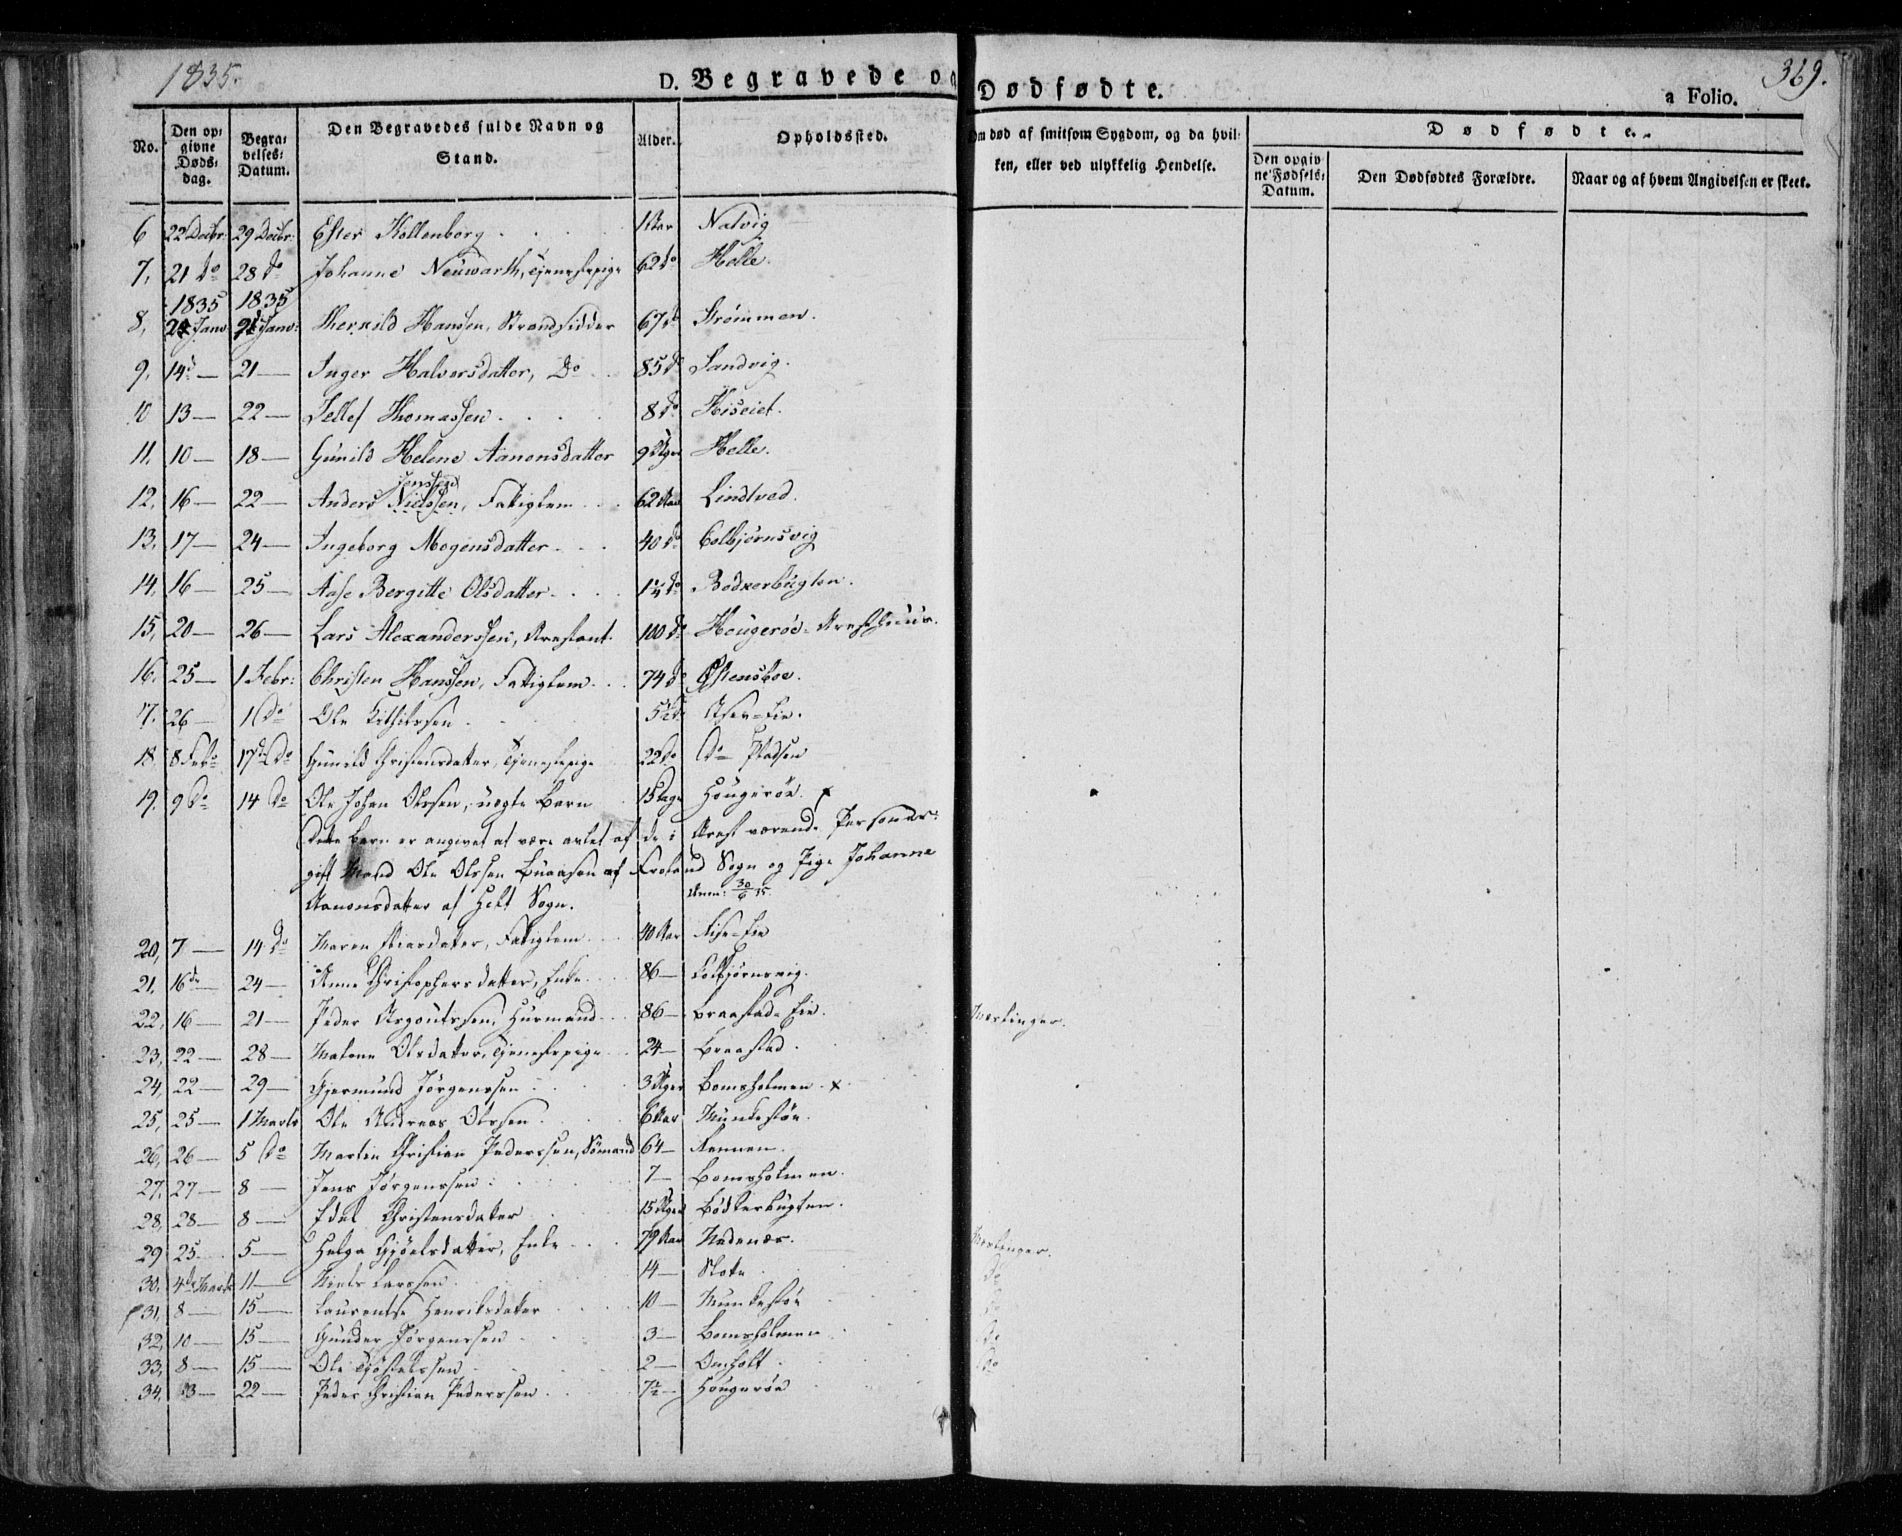 1835.
D. Begravede og Dødfødte.
369.
a Folio.
No.
Den opgivne Døds-dag.
Begravelses-Datum.
Den Begravedes fulde Navn og Stand.
Alder.
Opholdssted.
Om død af smitsom Sygdom, og da hvilken, eller ved ulykkelig Hendelse.
Dødfødte.
Den opgivne Fødsels-Datum.
Den Dødfødtes Forældre.
Naar og af hvem Angivelsen er skeet.
6 22 Decbr: 29 Decbr: Ester Kollenborg 1 Aar Natvig
7, 21 do 28 do Johanne Neuwarth, Tjenestepige 62 do Helle.
1835 1835
8, Janv: Janv: Therkild Hanssen, Strandsidder 67 do Strømmen.
9, 14 — 21 — Inger Halvorsdatter, Do 85 do Sandvig.
10 13 — 22 — Tellef Thomassen 8 do Hiseiet.
11. 10 — 18 — Gunild Helene Aanonsdatter 9 Uger Helle.
Jenssen
12, 16 — 22 — Anders Nielssen, Fattiglem 62 Aar Lindtved.
13, 17 — 24 — Ingeborg Mogensdatter 40 do Colbjørnsvig
14, 16 — 25 — Aase Bergitte Olsdatter 1 1/4 do Bødkerbugten.
15, 20 — 26 — Lars Alexanderssen, Arrestant. 100 do Hougerøe Arresthuus.
16. 25 — 1 Febr: Christen Hanssen, Fattiglem 74 do Østensboe.
17. 26 — 1 do Ole Kittelssen 5 1/2 do Asev=Eie.
18 8 Feb. 17 do Gunild Christensdatter, Tjenestepige 22 do do Pladsen
19, 9 do 14 do Ole Johan Olssen, uægte Barn 15 Dage Hougerøe. x
Dette Barn er angivet at være avlet af de i Arrest værende Personer:
gift Mand Ole Olssen Buaasen af Froland Sogn og Pige Johanne
Aanonsdatter af Holt Sogn. Anm: 30/6 35
20, 7 — 14 do Maren datter, Fattiglem 40 Aar Eie
21, 16 de 24 — Anne Christophersdatter, Enke 86 — Kolbjørnsvig.
22, 16 — 21 — Peder Asgoutssen, Huusmand 86 — Braastad=Eie. Mæslinger.
23, 22 — 28 — Malene Olsdatter, Tjenestepige 24 — Braastad.
24, 22 — 29 — Gjermund Jørgenssen 3 Uger Bomsholmen. x
25, 25 — 1 Marts Ole Andreas Olssen 6 Aar Munkestøe.
26, 26 — 5 do Martin Christian Pederssen, Sømand 64 — Rennen.
27, 27 — 8 — Jens Jørgenssen 7 — Bomsholmen.
28, 28 — 8 — Edel Christensdatter 15 Uger Bødkerbugten.
29 25 5 — Helga Gjøelsdatter, Enke 79 Aar Nedenæs. Mæslinger.
30, 4de Marts 11 — Niels Larssen 14 — Stoke do
31, 8 — 15 — Laurentse Henriksdatter 10 — Munkestøe do
32, 10 — 15 — Gunder Jørgenssen 3 — Bomsholmen do
33, 8 — 15 — Ole Gjøstelssen 2 — Omholt. do
34, 13 — 22 — Peder Christian Pederssen 7 1/2 — Hougerøe